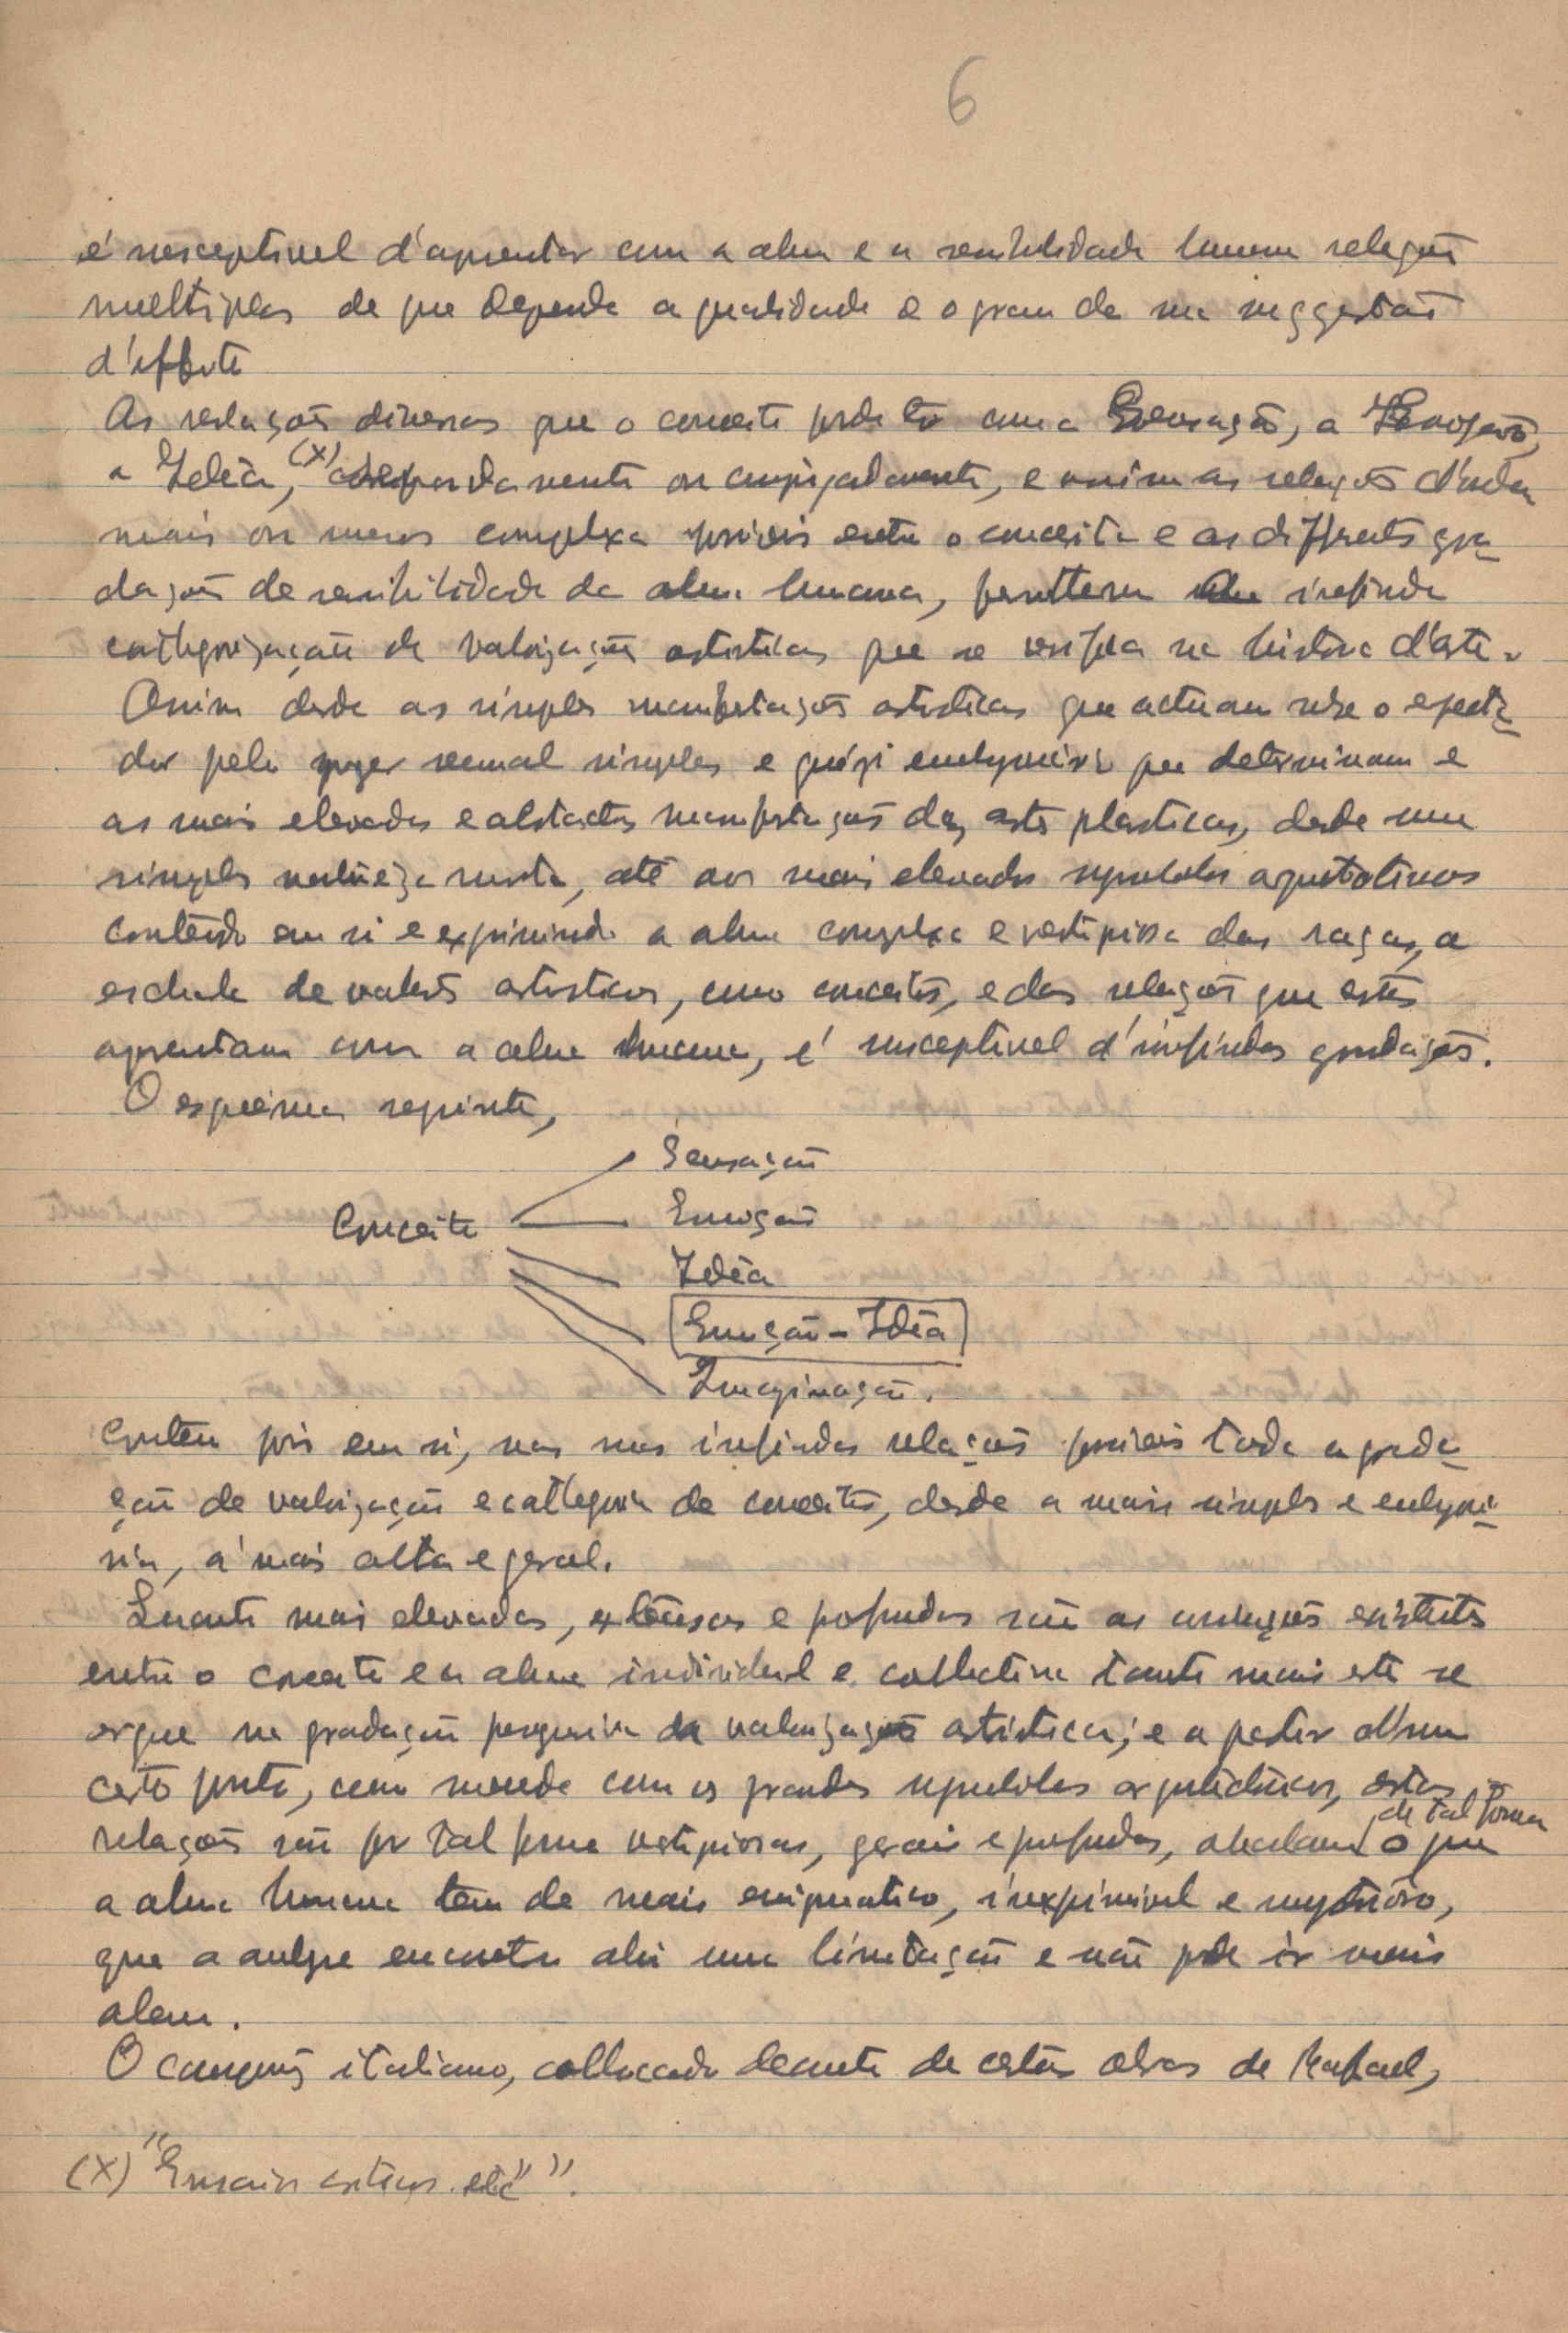 6
é susceptivel d'apresentar com a alma e a sensibilidade humana relações
multiplas de que depende a qualidade e o grau da sua suggestão
d'arte
As relações diversas que o conceito pode ter com a Sensação, a Emoção,
a Idéa, (X) separadamente ou conjugadamente, e assim as relações d'ordem
mais ou menos complexa possiveis entre o conceito e as differentes gra-
dações de sensibilidade da alma humana, permittem a infinda
cathegorização de valorizações artisticas que se verifica na historia d'arte.
Assim desde as simples manifestações artisticas que actuam sobre o especta-
dor pelo prazer sensual simples e quási embryonário que determinam e
as mais elevadas e abstractas manifestações das artes plasticas, desde uma
simples natureza morta, até aos mais elevados symbolos
contendo em si e exprimindo a alma complexa e vertiginosa das raças, a
escala de valores artisticos, como conceitos, e das relações que estes
apresentam com a alma humana, é susceptivel d'infindas gradações.
O esquema seguinte,
Sensação
Conceito Emoção
Idéa
Emoção - Idéa
Imaginação.
Contem pois em si, nas suas infindas relações possiveis toda a grada-
ção de valorização e cathegoria de conceitos, desde a mais simples e embryo-
nária, á mais alta e geral.
Quanto mais elevadas, extensas e profundas são as relações existentes
entre o conceito e a alma individual e collectiva tanto mais este se
ergue na gradação progressiva da valorização artistica; e a partir d'um
certo ponto, como succede com os grandes symbolos, estas
relações são por tal forma vertiginosas, geraes e profundas, abalam de tal forma o que
a alma humana tem de mais enigmatico, inexprimivel e mysterioso,
que a analyse encontra ahi uma limitação e não pode ir mais
alem.
O camponês italiano, collocado deante de certas obras de Rafael,
(X) "Ensaios criticos etc".